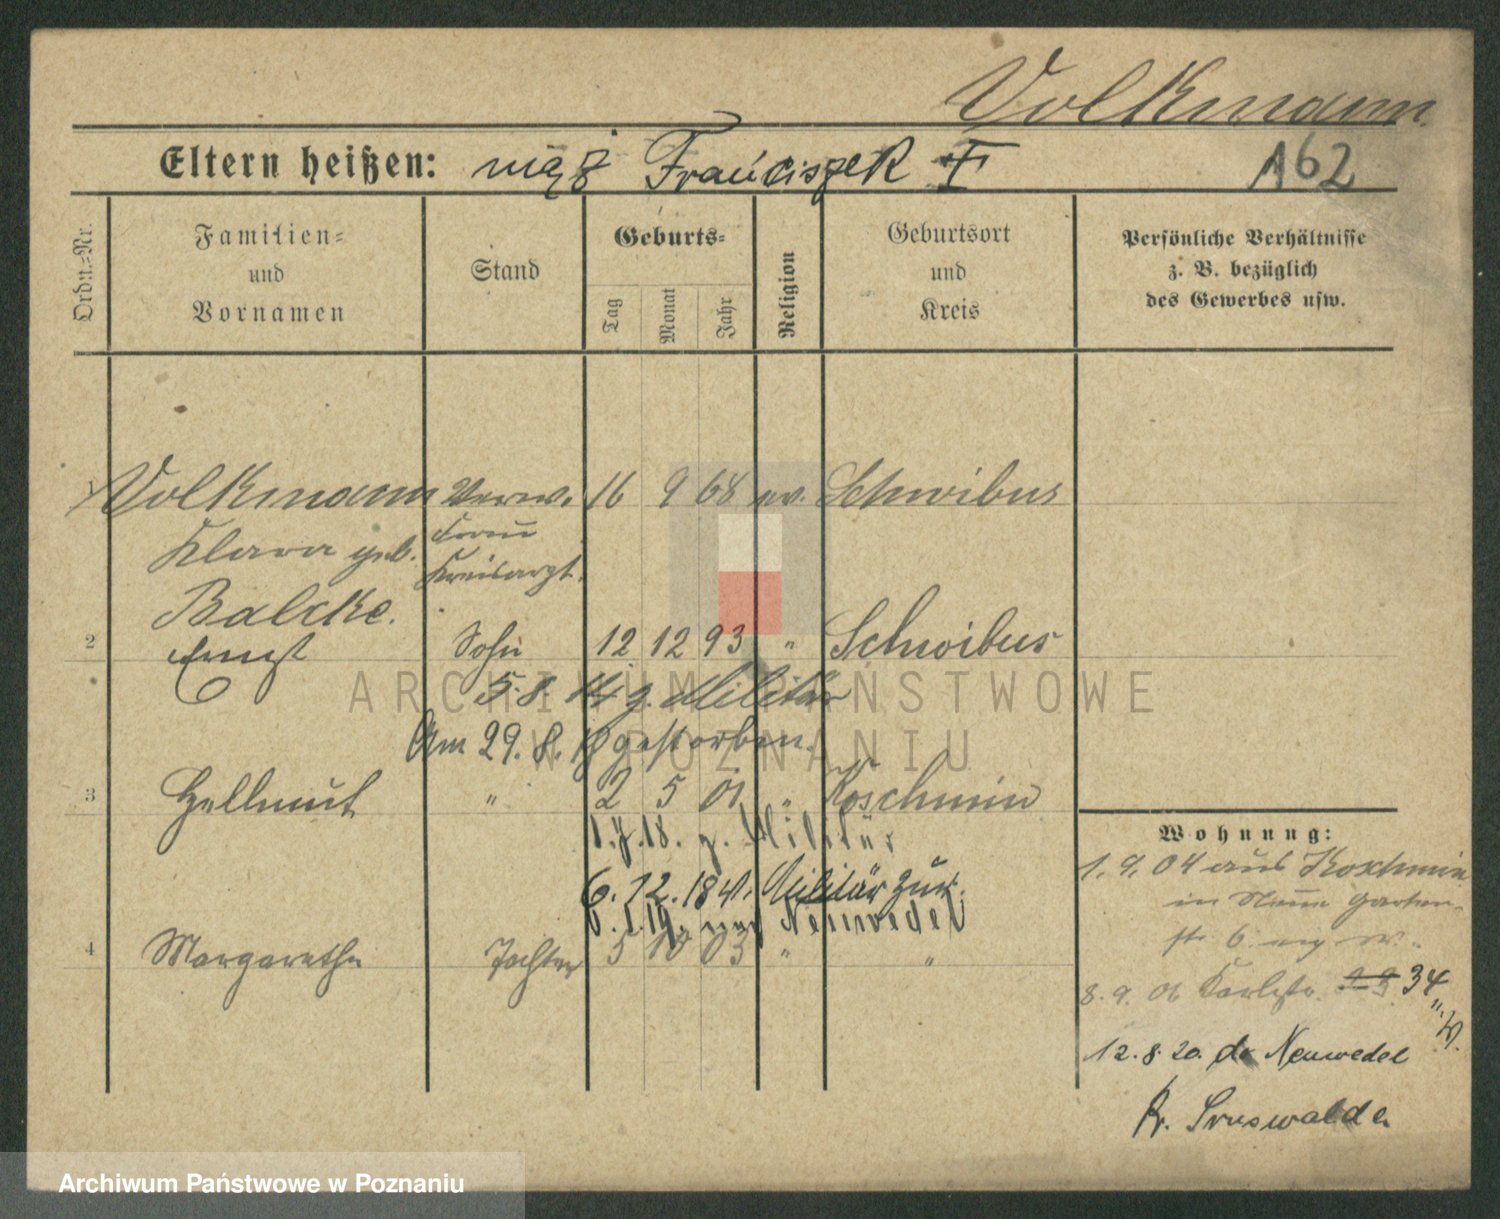 Volkmann.
Eltern heißen: mąż Franciszek †
162
Ordn.-Nr.
Familien-
und
Vornamen
Stand
Geburts-
Tag
Monat
Jahr
Religion
Geburtsort
und
Kreis
Persönliche Verhältnisse
z. B. bezüglich
des Gewerbes usw.
1 Volkmann Verw. 16 9 68 ev. Schwibus
Klara geb. Frau
Balcke. Kreisarzt.
2 Ernst Sohn 12 12 93 " Schwibus
5.8.14 z. Militär
Am 29.8.18 gestorben.
3 Hellmut " 2 5 01 " Koschmin
1.7.18. z. Militär
6.12.18 v. Militär zur.
6.1.19. nach Neuwedel
4 Margarethe Tochter 5 10 03 " "
Wohnung:
1.9.04 aus Koschmin
in Neue Garten-
str. 6
8.9.06 Karlstr. 34
12.8.20. do Neuwedel
Kr.
ARCHIWUM PAŃSTWOWE
W POZNANIU
Archiwum Państwowe w Poznaniu